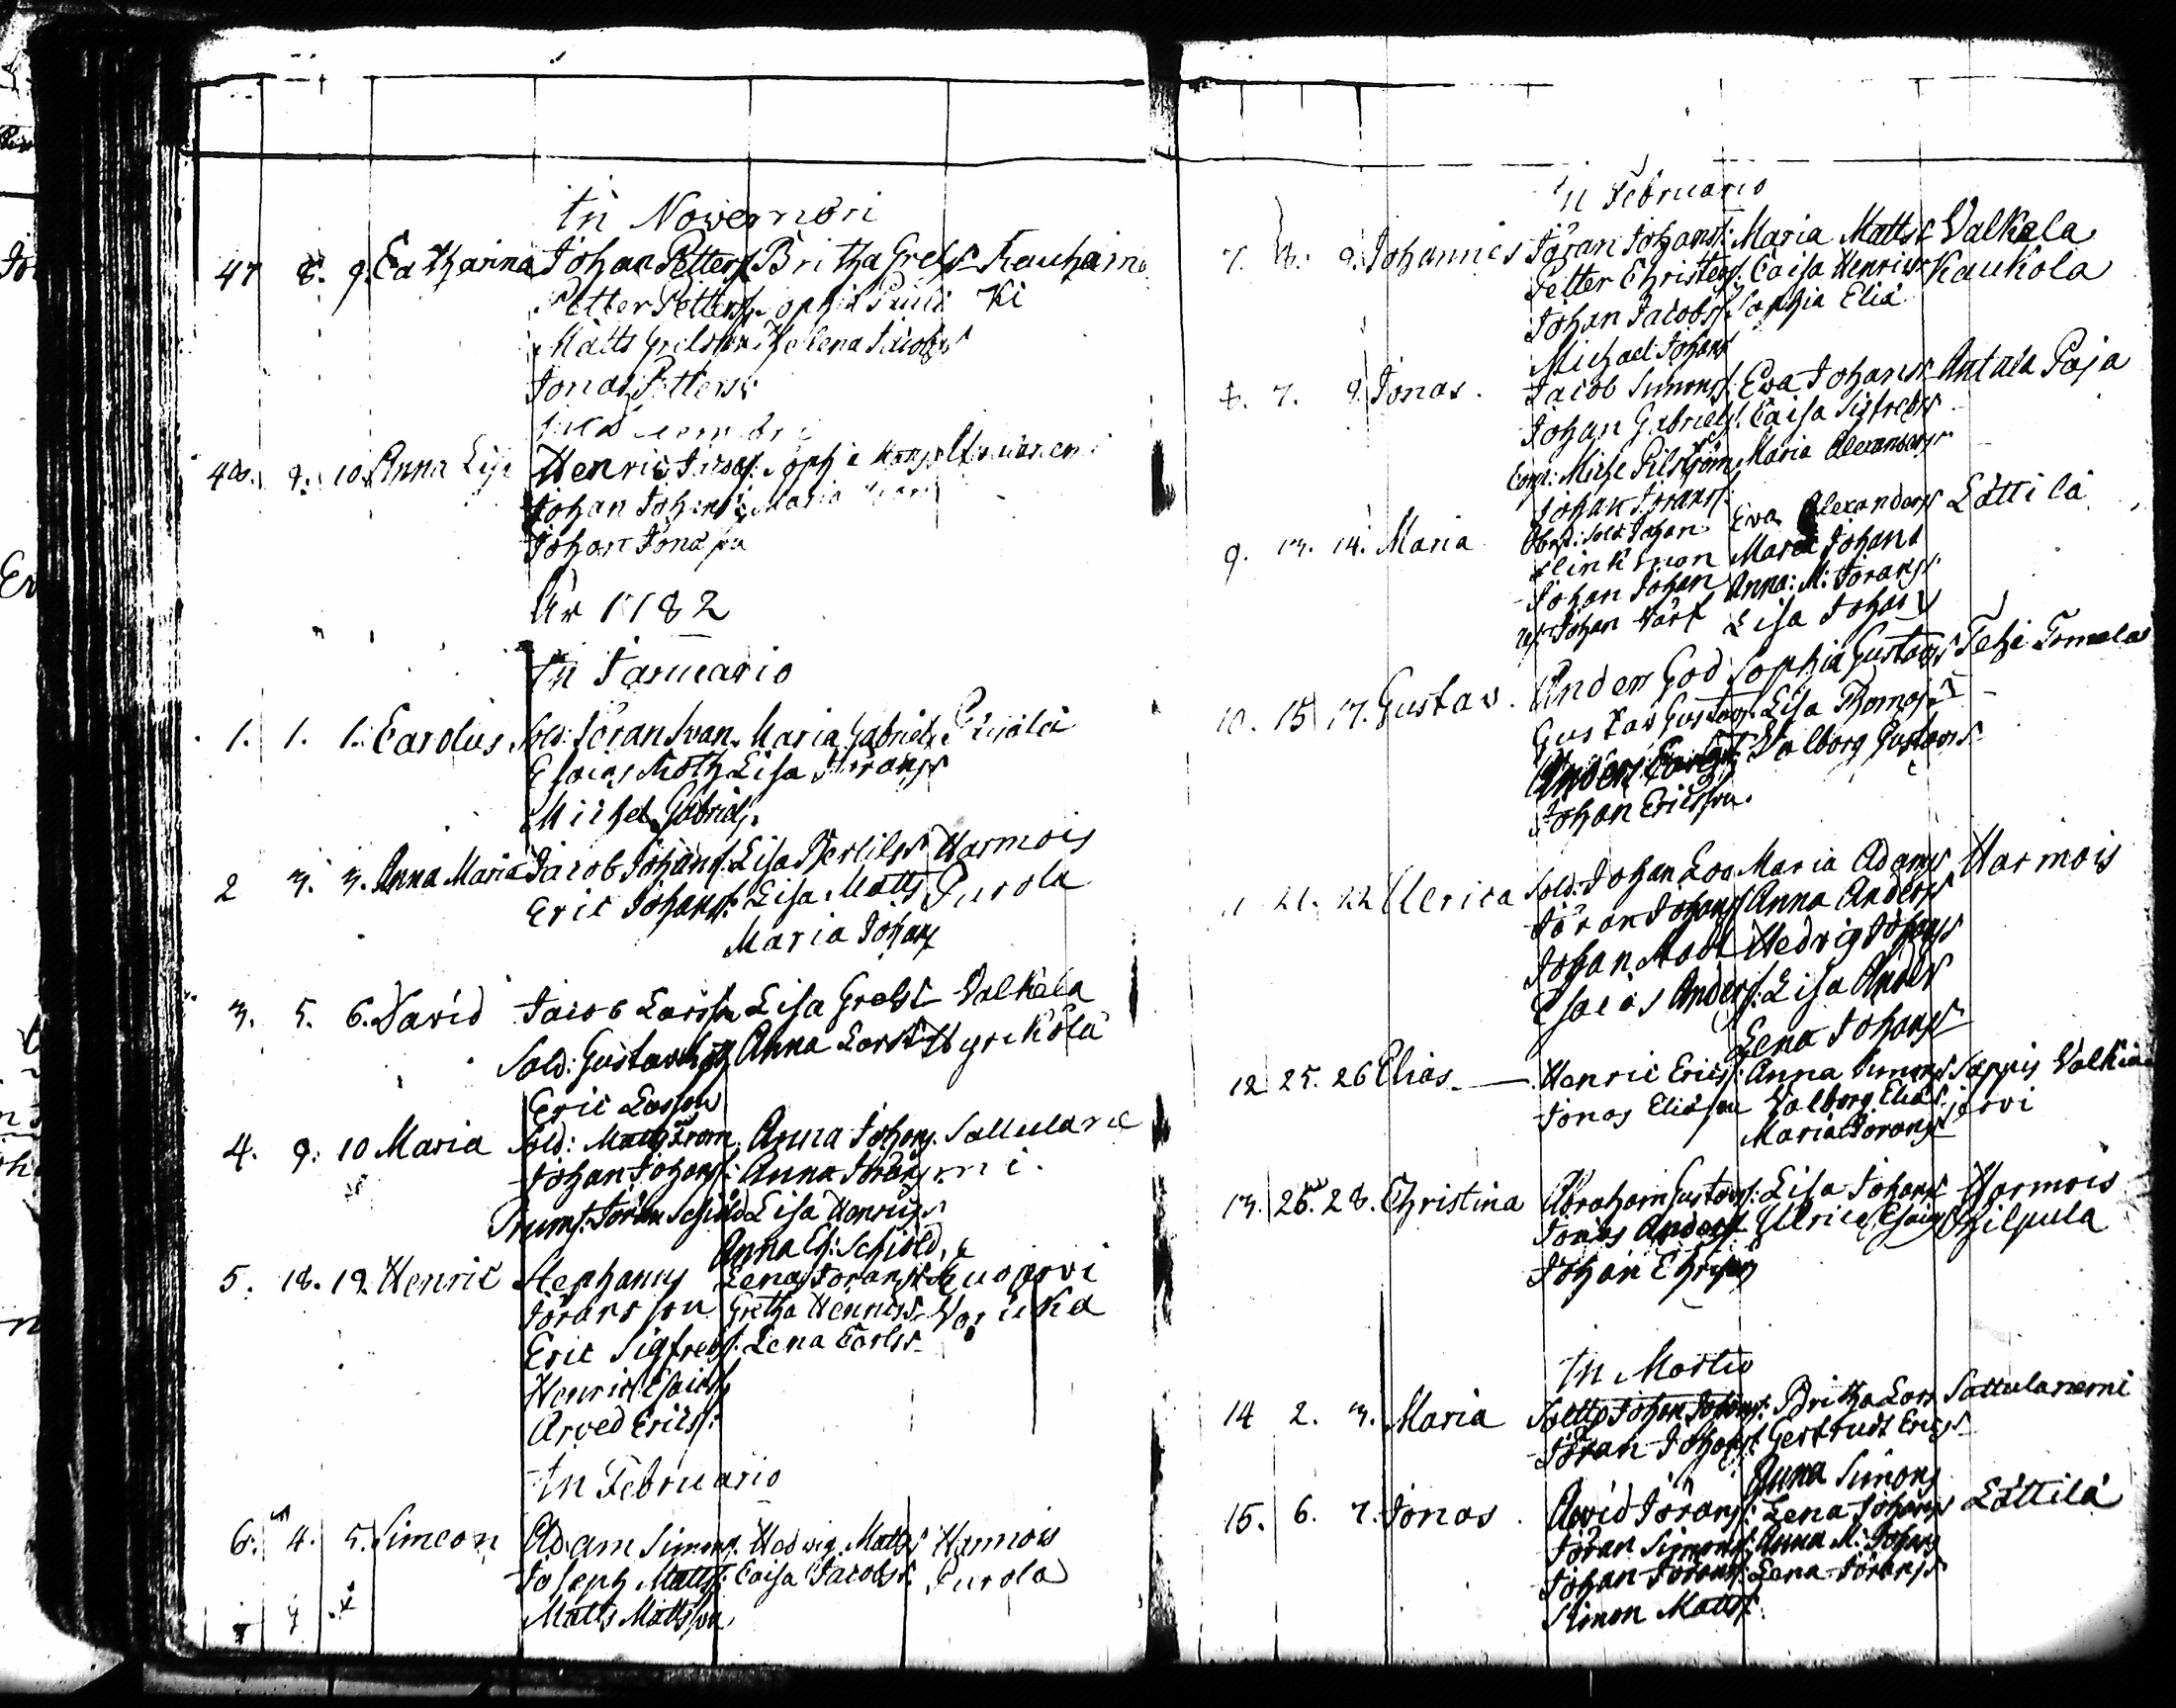 In Novembri
47 8. 9. Catharina Johan Petterss Britha Grelss Rauhama
Petter Petterss Sophia Pauli ki
Matts Grelsson Helena Jacobss
Jonas Petterss
48. 9. 10. Anna Lisa Henric Sophia
Johan Johanss Maria
Johan Jonasson
År 1782
In Januario
1. 1. 1. Carolus Sold: Jöran Svan. Maria Gabriels
Esaias Lisa Jöranss
Michel Gabriels.
2 3. 3. Anna Maria Jacob Johanss. Lisa Bertilss Harmois
Eric Johanss: Lisa Matts Purola
Maria Johans
3. 5. 6. David Jacob Larsson Lisa Grelss Valkala
Sold: Gustav Anna Larss Hyrkölä
Eric Larsson
4. 9. 10 Maria Sold: Anna Johans. Sattulanie
Johan Johanss: Anna Jörans mi.
Trums. Jöran Schiöld Lisa Henricss
Anna El: Schiöld
5. 18. 19. Henric Stephanus Lena Jöranss
Jöransson Gretha Henricss
Eric Sigfredss. Lena Carlss
Henric Esaiass
Arved Ericss:
In Februario
6. 4. 5. Simeon Adam Simons. Hedvig Matts Harmois
Joseph Mattss: Caisa Jacobss. Purola
Matts Mattsson
In Februario
7. 8. 9. Johannes Jöran Johanss: Maria Mattss Valkala
Petter Christerss. Caisa Henricss Kaukola
Johan Jacobss Sophia Elia
Michael Johanss
8. 7. 9. Jonas. Jacob Simonss. Eva Johanss Antala Paja
Johan Gabrielss. Caisa Sigfredss
Corp: Michel Maria Alexanderss
Johan Jöranss:
9. 13. 14. Maria Sold: Johan Eva Alexanderss Löttilä
Maria Johans
Johan Johan Anna: M: Jöranss
Johan Lisa Johans
10. 15 17. Gustav. Anders God Sophia Gustavss Tehi Tomela
Gustav Gustavss. Lisa Thomass
Anders Valborg Gustavss
Johan Ericsson.
21. 22 Ulrica Sold: Johan Maria Adamss Harmois
Jöran Johanss Anna Anderss
Johan Hedvig Johanss
Esaias Anderss: Lisa Anders
Lena Johanss
12 25. 26 Elias. Henric Ericss: Anna Simonss Sappis Valkia
Jonas Eliasson Valborg Elias järvi
Maria Jöranss
13. 26. 28. Christina Abraham Gustavss: Lisa Johanss Harmois
Jonas Anderss Ulrica Esaiass Hilpula
Johan
In Martio
14 2. 3. Maria Johan Britha Larss Sattulanemi
Jöran Johanss: Gertrudt Ericss
Anna Simons
15. 6. 7. Jonas. Arvid Jöranss: Lena Johanss Löttilä
Jöran Simonss: Anna M: Johans
Johan Jöranss: Lena Jöranss
Simon Mattss.